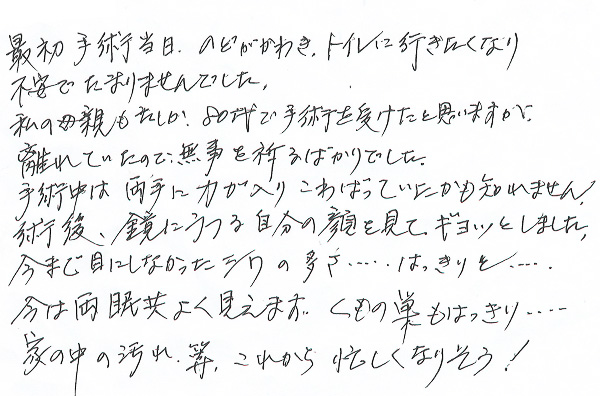 最初 手術当日、のどがかわき、トイレに行きたくなり
不安でたまりませんでした。
私の母親もたしか 80代で手術を受けたと思いますが、
離れていたので、無事を祈るばかりでした。
手術中は両手に力が入りこわばっていたかも知れません。
術後、鏡にうつる自分の顔を見て、ギョッとしました。
今まで目にしなかったシワの多さ……はっきりと……
今は両眼共よく見えます。くもの巣もはっきり……
家の中の汚れ、等、これから忙しくなりそう！